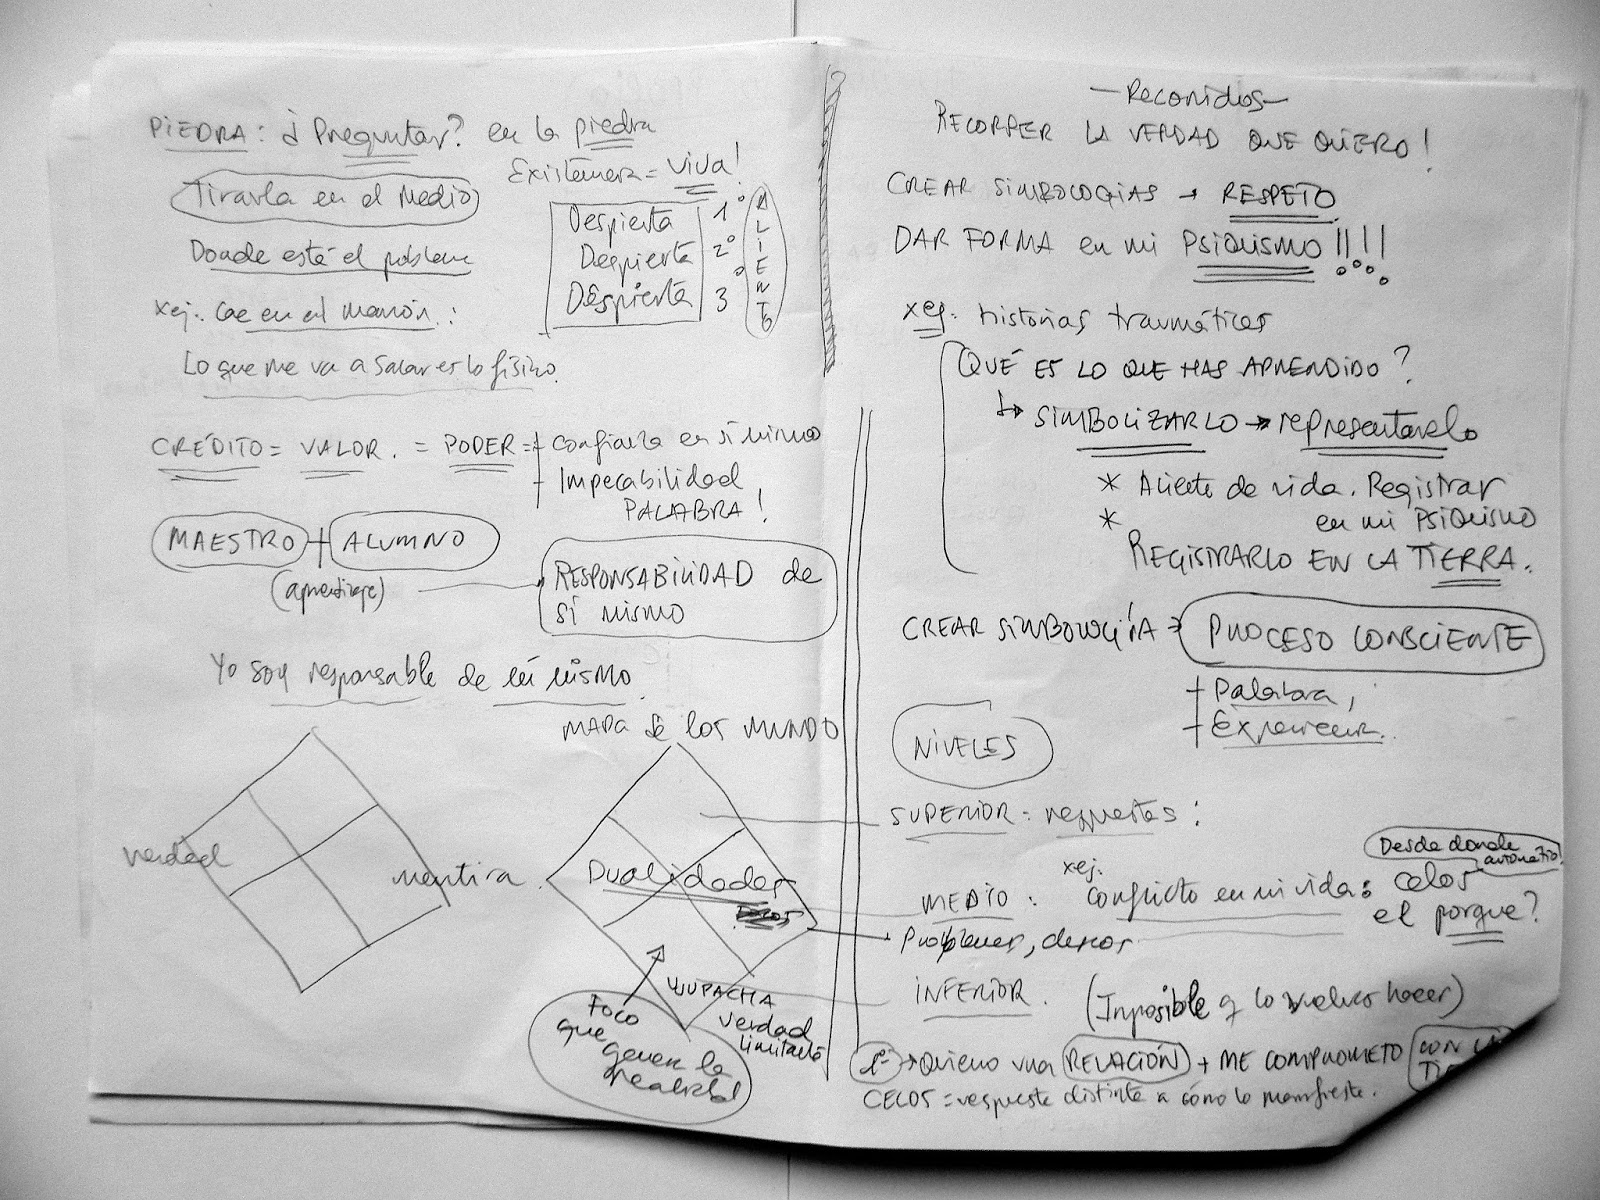 PIEDRA: ¿Preguntar? en la piedra
Existencia = Viva!
Tirarla en el Medio
Despierta 1º
Despierta 2º
Despierta 3º
ALIENTO
Donde está el problema
xej: Cae en el marrón:
Lo que me va a sanar es lo físico.
CRÉDITO = VALOR. = PODER = + Confianza en sí mismo
+ Impecabilidad
PALABRA!
MAESTRO + ALUMNO
(aprendizaje)
RESPONSABILIDAD de
SÍ MISMO
Yo soy responsable de mí mismo.
MAPA DE LOS MUNDO
verdad
mentira.
Dualidades
UJUPACHA
verdad
limitante
Foco
que
genera la
realidad
-Recorridos-
RECORRER LA VERDAD QUE QUIERO!
CREAR SIMBOLOGIAS → RESPETO
DAR FORMA en mi PSIQUISMO!!!!
xej: historias traumáticas
QUÉ ES LO QUE HAS APRENDIDO?
↳ SIMBOLIZARLO → representarlo
* Aliento de vida. Registrar
* en mi PSIQUISMO
REGISTRARLO EN LA TIERRA.
CREAR SIMBOLOGÍA → PROCESO CONSCIENTE
+ Palabra,
+ Experiencia.
NIVELES
SUPERIOR = respuestas:
Desde donde
automático!
MEDIO: xej. Conflicto en mi vida: celos
el porque?
Problemas, deseos
INFERIOR. (Imposible q lo vuelvas hacer)
1º → Quiero una RELACIÓN + ME COMPROMETO CON LA
CELOS = respuesta distinta a cómo lo manifieste.